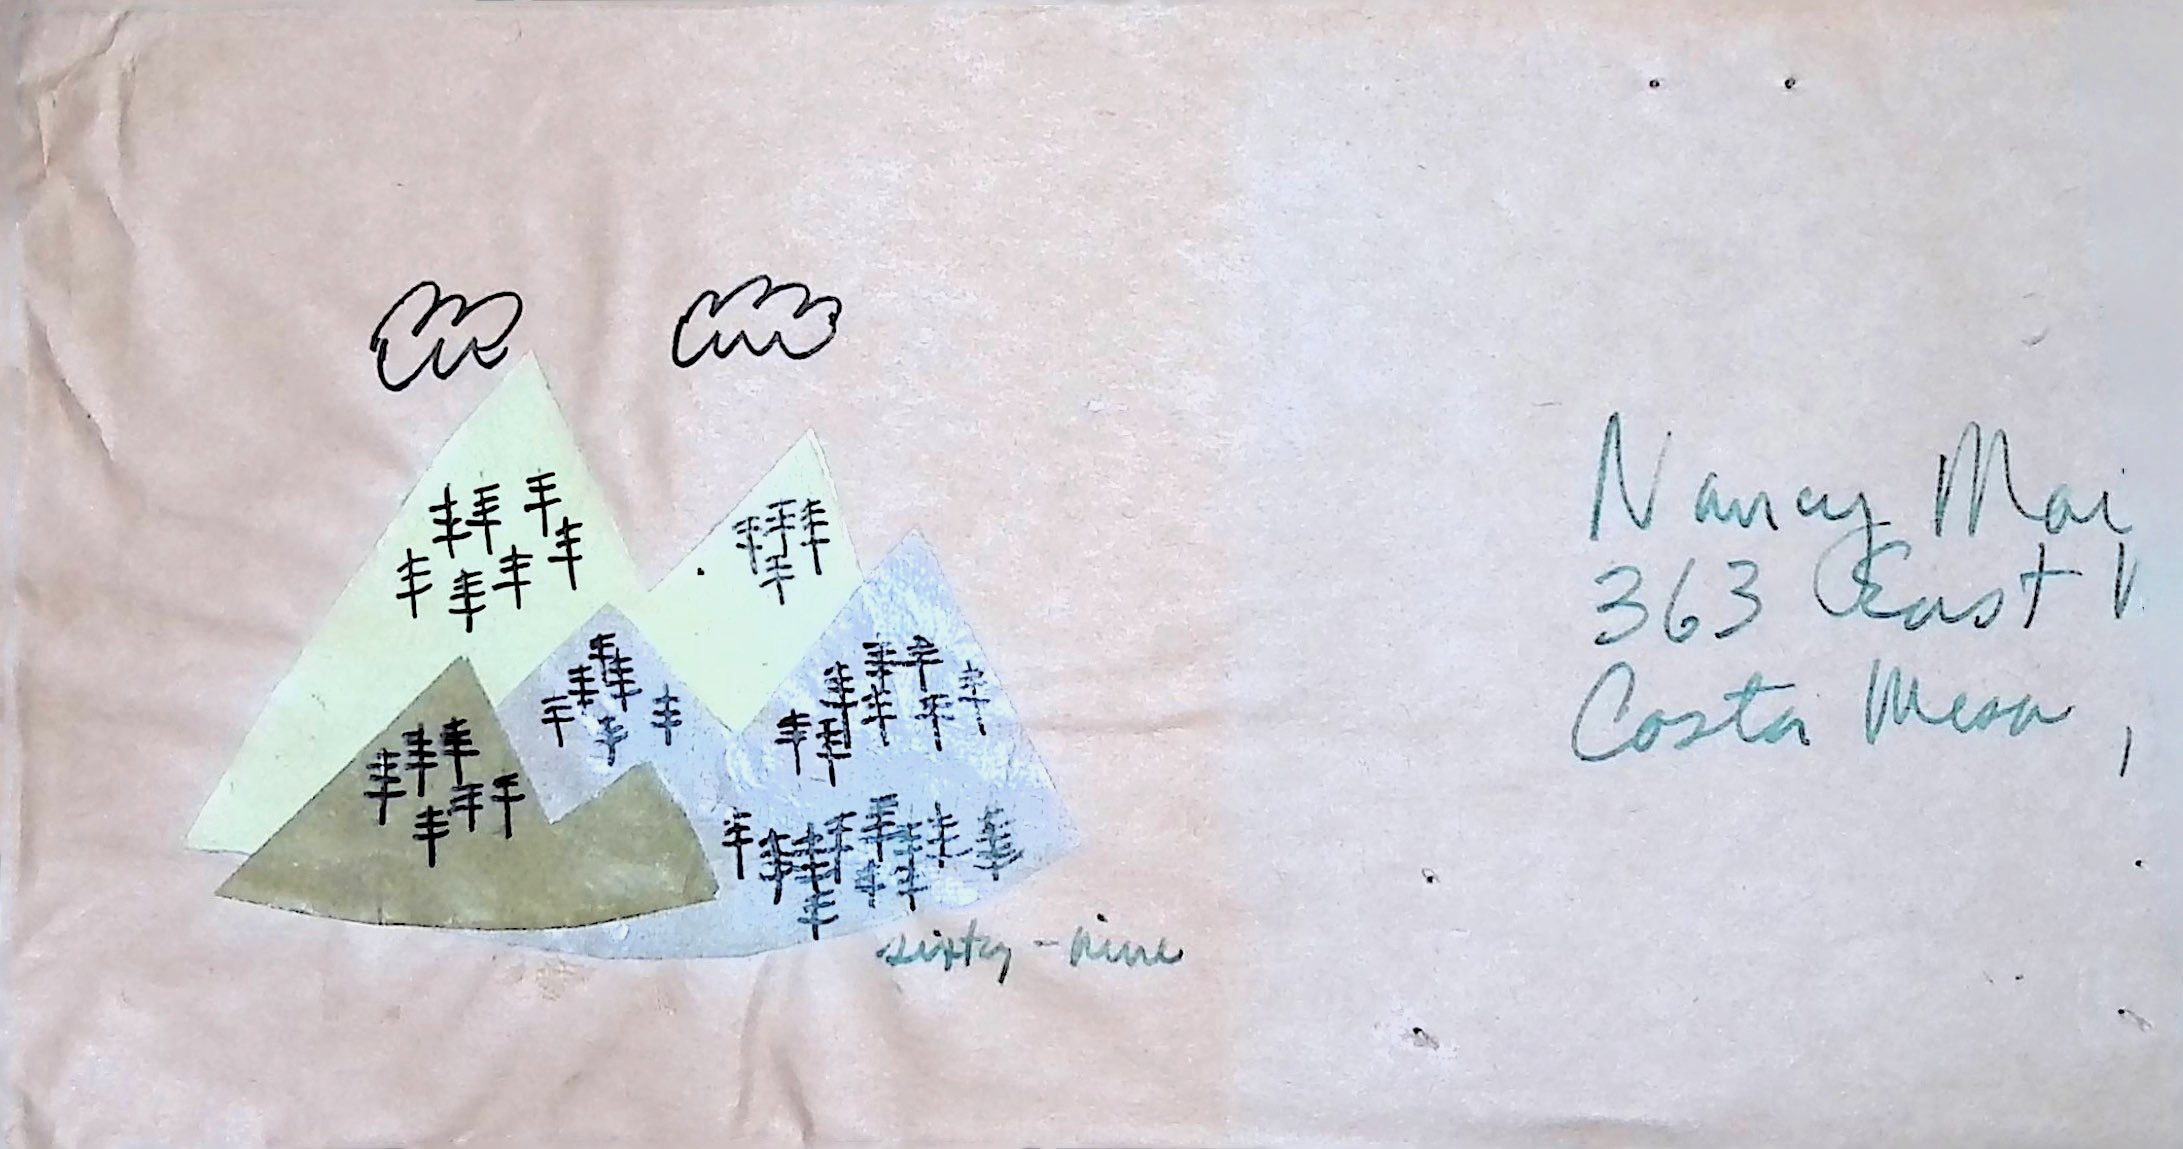 sixty-nine
Nancy Mai
363 East
Costa Mesa,